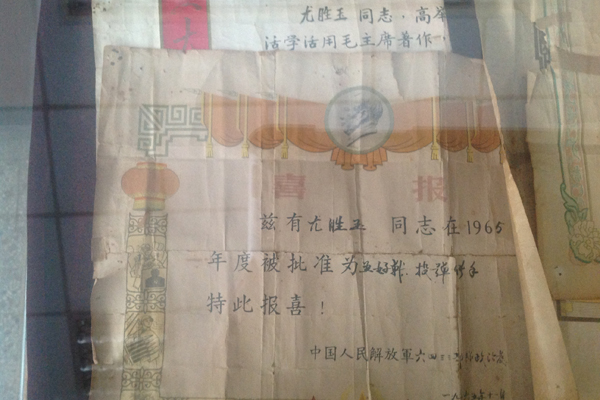 尤胜玉 同志，高举
活学活用毛主席著作
喜 报
兹有尤胜玉 同志在1965
年度被批准为五好战、投弹能手
特此报喜！
中国人民解放軍六四